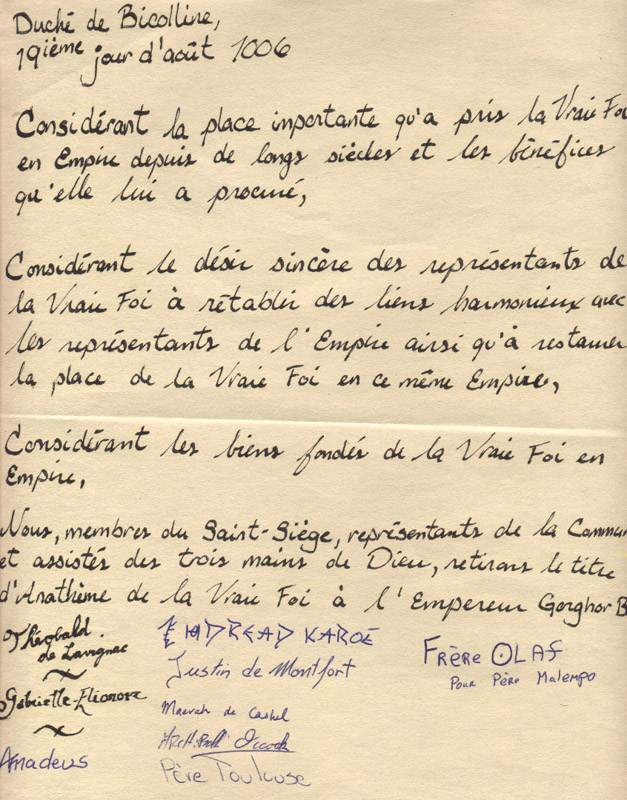 Duché de Bicolline,
19ième jour d'août 1006
Considérant la place importante qu'a pris la Vraie Foi
en Empire depuis de longs siècles et les bénéfices
qu'elle lui a procuré,
Considérant le désir sincère des représentants de
la Vraie Foi à rétablir des liens harmonieux avec
les représentants de l'Empire ainsi qu'à restaurer
la place de la Vraie Foi en ce même Empire,
Considérant les biens fondés de la Vraie Foi en
Empire,
Nous, membres du Saint-Siège, représentants de la Commun
et assistés des trois mains de Dieu, retirons le titre
d'Anathème de la Vraie Foi à l'Empereur Gorghor B
Théobald
de Lavignac
Gabrielle-Éléonore
Amadeus
KAROE
Justin de Montfort
Maevah de Cashel
Père Toulouse
Frère OLAF
Pour Père Malempo